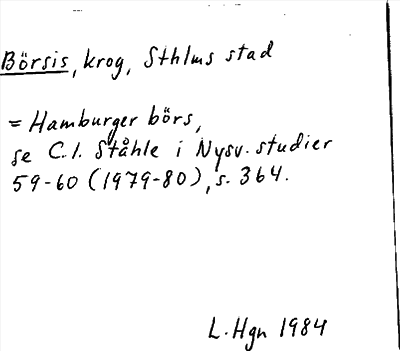 Börsis, krog, Sthlms stad
= Hamburger börs,
se C.I. Ståhle i Nysv. studier
59-60 (1979-80), s. 364.
L. Hgn 1984